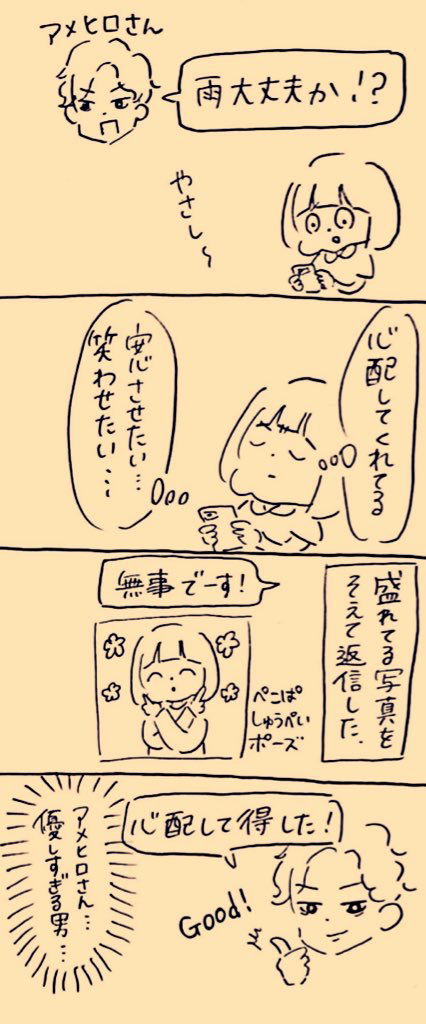 アメヒロさん
雨大丈夫か!?
やさし〜
心配してくれてる
安心させたい…
笑わせたい…
無事でーす!
盛れてる写真を
そえて返信した.
ぺこぱ
しゅうぺい
ポーズ
心配して得した!
Good!
アメヒロさん…
優しすぎる男…